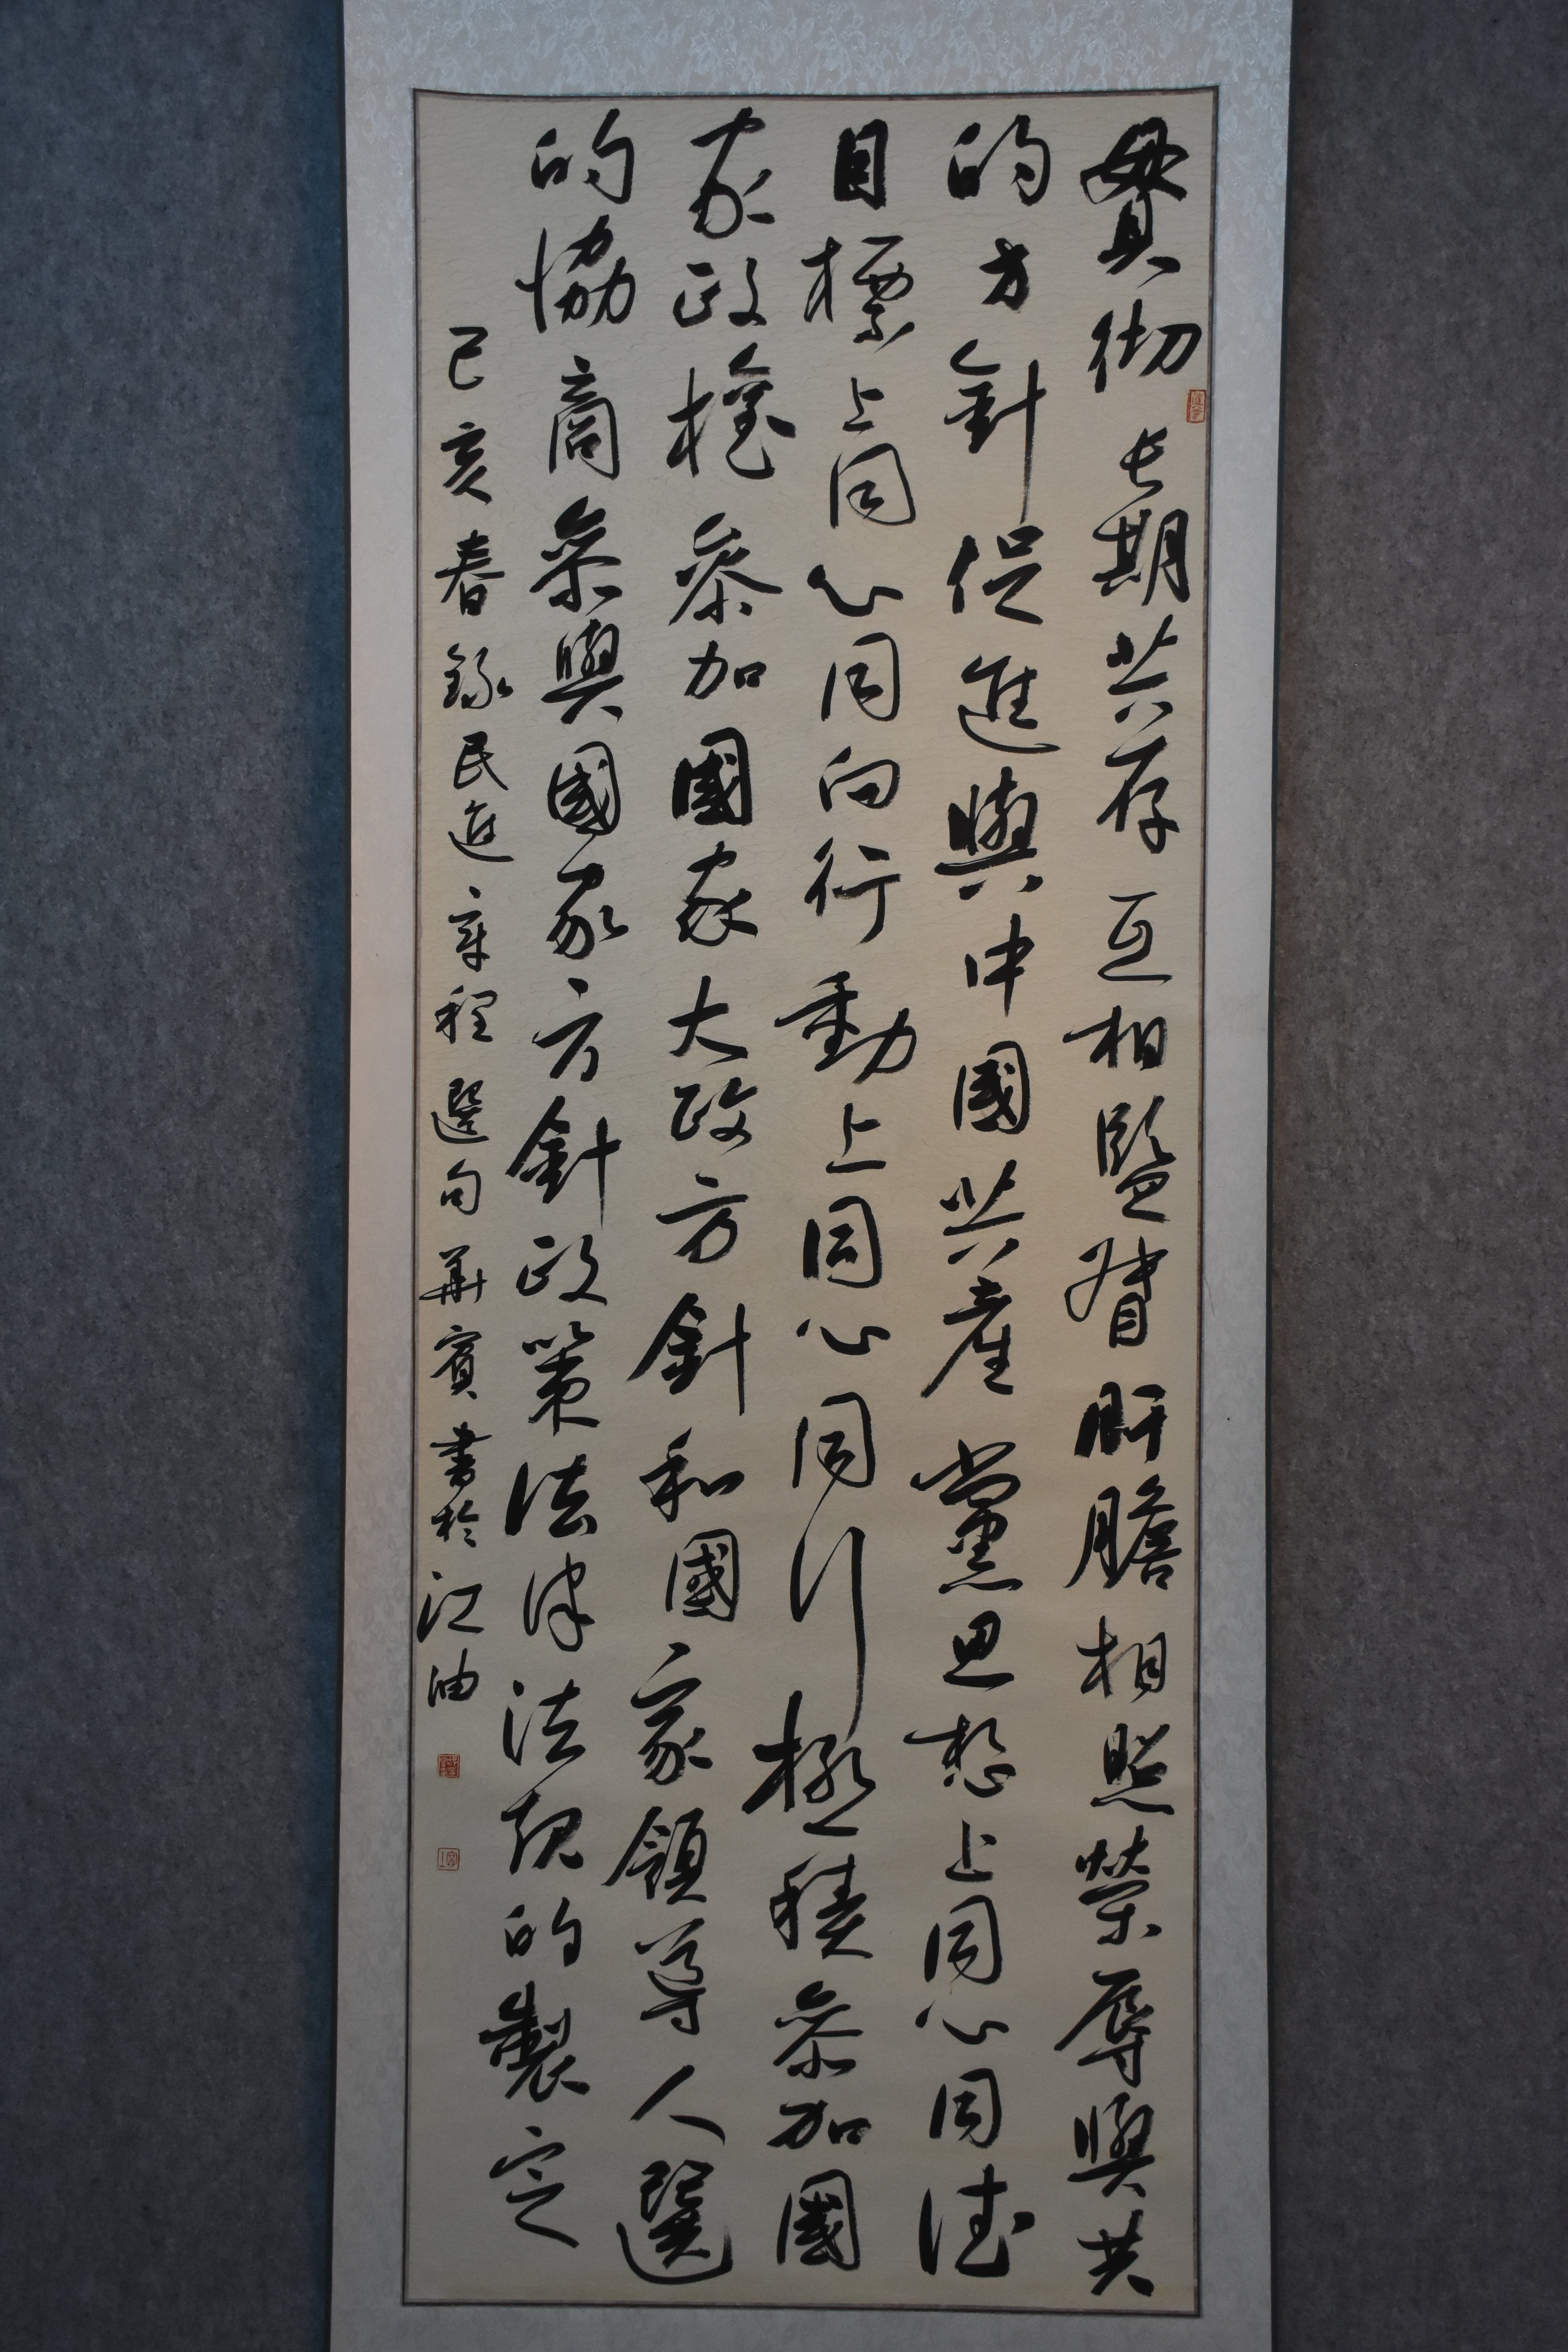 貫彻长期共存互相監督肝膽相照榮辱與共
的方針促進與中國共産黨思想上同心同德
目標上同心同向行動上同心同行極積參加國
家政權參加國家大政方針和國家領導人選
的協商參與國家方針政策法律法規的製定
己亥春錄民進章程選句華賓書於江油